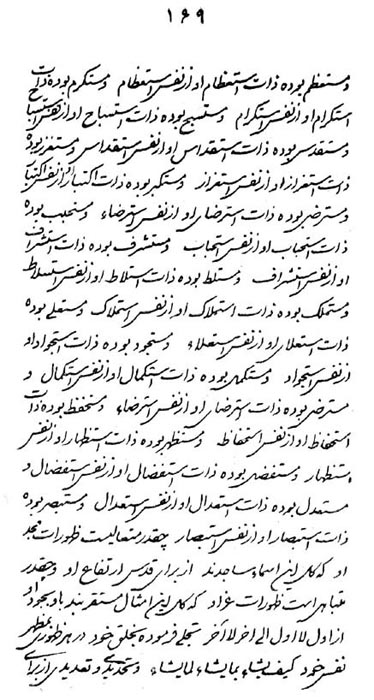 ۱۶۹
و مستعظم بوده ذات استعظام او از نفس استعظام و مستکرم بوده ذات
استکرام او از نفس استکرام و مستسبح بوده ذات استسباح او از نفس استسباح
و مستقدس بوده ذات استقداس او از نفس استقداس و مستفرز بوده
ذات استفراز او از نفس استفراز و مستکبر بوده ذات
و مسترضی بوده ذات استرضای او از نفس استرضاء و مستجلب بوده
ذات استجاب او از نفس استجاب و مستشرف بوده ذات استشراف
او از نفس استشراف و مستلط بوده ذات استلاط او از نفس استسلاط
و مستملک بوده ذات استملاک او از نفس استملاک و مستعلی بوده
ذات استعلای او از نفس استعلاء و مستجود بوده ذات استجواد او
از نفس استجواد و مستکمل بوده ذات استکمال او از نفس استکمال و
مسترضی بوده ذات استرضای او از نفس استرضاء و مستحفظ بوده ذات
استحفاظ او از نفس استحفاظ و مستظهر بوده ذات استظهار او از نفس
استظهار و مستفضل بوده ذات استفضال او از نفس استفضال و
مستعدل بوده ذات استعدال او از نفس استعدال و مستبصر بوده
ذات استبصار او از نفس استبصار چقدر متعالیست ظهورات مجد
او که کل این اسماء ساجدند از برای قدس ارتفاع او و چقدر
متباهی است ظهورات عز او که کل این امثال مستقرند باو بجود او
از اول لا اول الی اخر لا اخر تجلی فرموده بخلق خود در هر ظهوری بمظهر
نفس خود کیف یشاء بما یشاء لما یشاء و تحدیدی و تعدیدی از برای